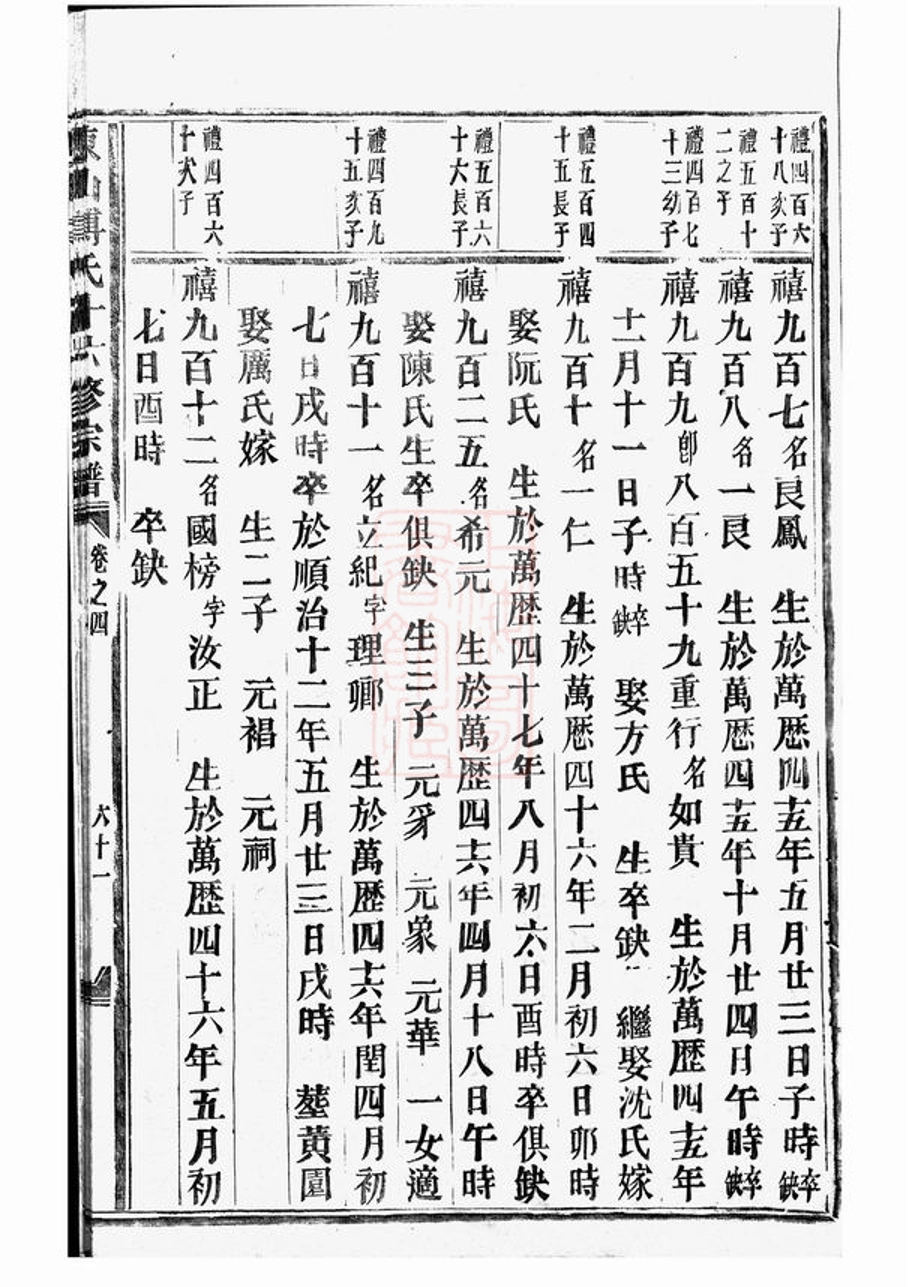 禮四百六
十八亥子
禧九百七名良鳳 生於萬歷四十五年五月廿三日子時卒缺
禮五百十
二之子
禧九百八名一良 生於萬歷四十五年十月廿四日午時卒缺
禮四百七
十三幼子
禧九百九卽八百五十九重行名如貴 生於萬歷四十五年
十一月十一日子時卒缺 娶方氏 生卒缺 繼娶沈氏嫁
禮五百四
十五長子
禧九百十名一仁 生於萬歷四十六年二月初六日卯時
娶阮氏 生於萬歷四十七年八月初六日酉時卒俱缺
禮五百六
十六長子
禧九百二五名希元 生於萬歷四十六年四月十八日午時
娶陳氏生卒俱缺 生三子 元豸 元象 元華 一女適
禮四百九
十五亥子
禧九百十一名立紀字理卿 生於萬歷四十六年閏四月初
七日戌時卒於順治十二年五月廿三日戌時 塟黃園
娶厲氏嫁 生二子 元裮 元祠
禮四百六
十次子
禧九百十二名國榜字汝正 生於萬歷四十六年五月初
七日酉時 卒缺
傅氏十六修宗譜
卷之四
六十一